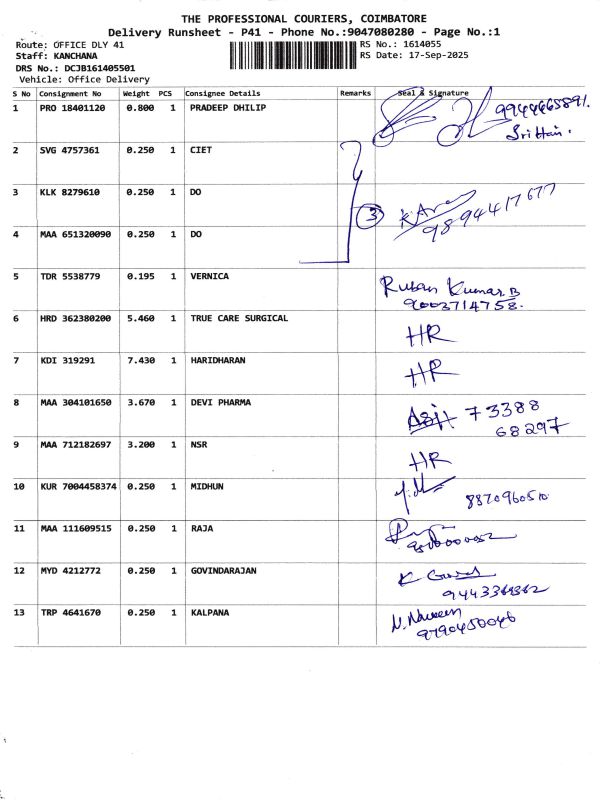 THE PROFESSIONAL COURIERS, COIMBATORE
Delivery Runsheet - P41 - Phone No.:9047080280 - Page No.:1
Route: OFFICE DLY 41
RS No.: 1614055
Staff: KANCHANA
RS Date: 17-Sep-2025
DRS No.: DCJB161405501
Vehicle: Office Delivery
S No Consignment No Weight PCS Consignee Details Remarks Seal & Signature
1 PRO 18401120 0.800 1 PRADEEP DHILIP 9944465891.
Srithan.
2 SVG 4757361 0.250 1 CIET
3 KLK 8279610 0.250 1 DO 3 9894417677
4 MAA 651320090 0.250 1 DO
5 TDR 5538779 0.195 1 VERNICA Ruban Kumar B
9003714758.
6 HRD 362380200 5.460 1 TRUE CARE SURGICAL HR
7 KDI 319291 7.430 1 HARIDHARAN HR
8 MAA 304101650 3.670 1 DEVI PHARMA 73388
68297
9 MAA 712182697 3.200 1 NSR HR
10 KUR 7004458374 0.250 1 MIDHUN 8870960510
11 MAA 111609515 0.250 1 RAJA
12 MYD 4212772 0.250 1 GOVINDARAJAN
13 TRP 4641670 0.250 1 KALPANA N. Naveen
9790450046